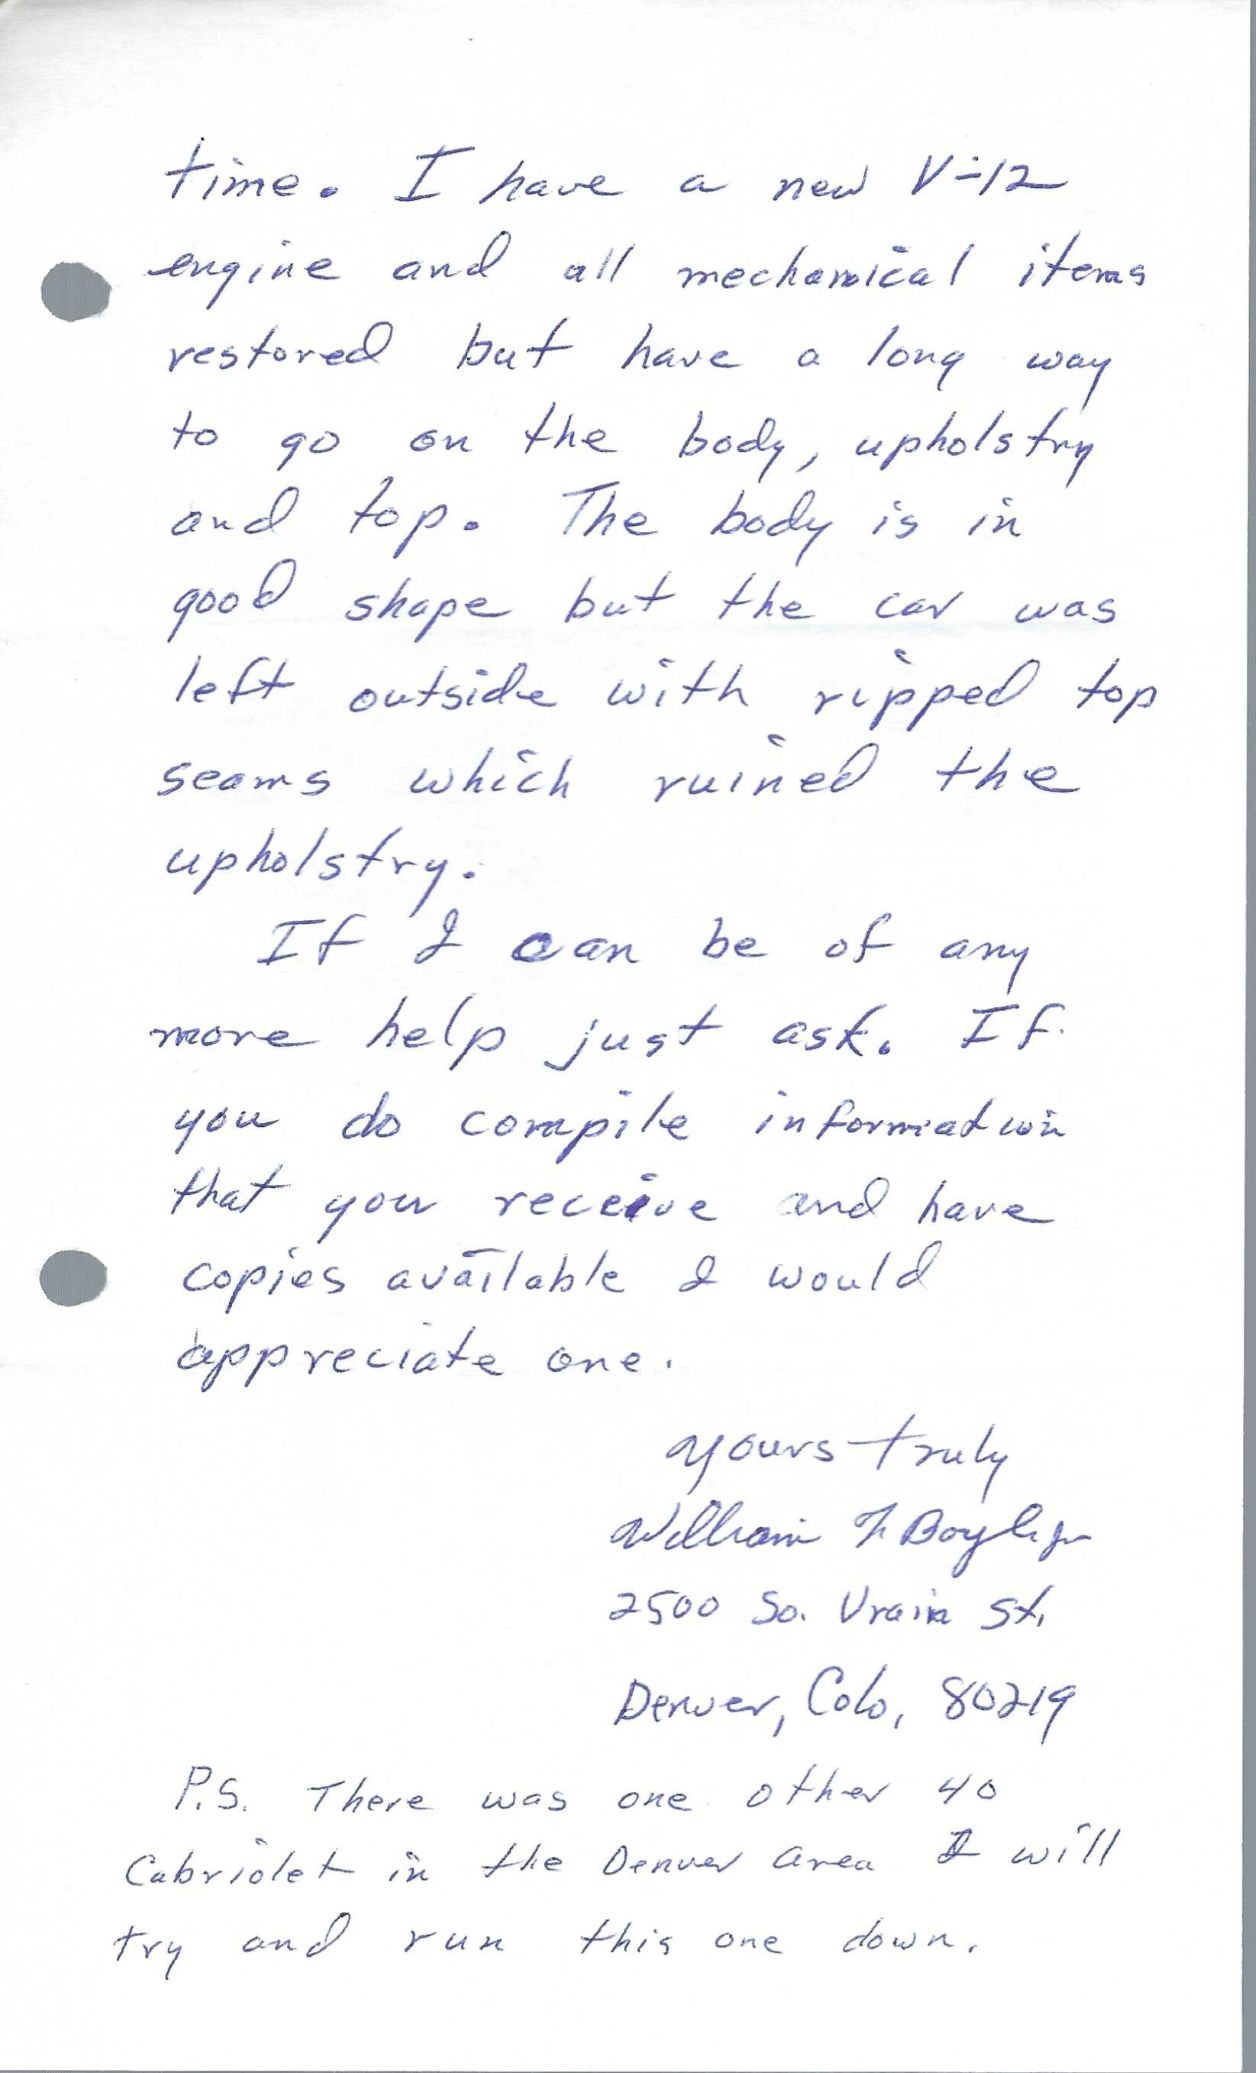 time. I have a new V-12
engine and all mechanical items
restored but have a long way
to go on the body, upholstry
and top. The body is in
good shape but the car was
left outside with ripped top
seams which ruined the
upholstry.
If I can be of any
more help just ask. If
you do compile information
that you receive and have
copies available I would
appreciate one.
Yours truly
William F Boyle Jr
2500 So. Vrain St.
Denver, Colo, 80219
P.S. There was one other 40
Cabriolet in the Denver area I will
try and run this one down.